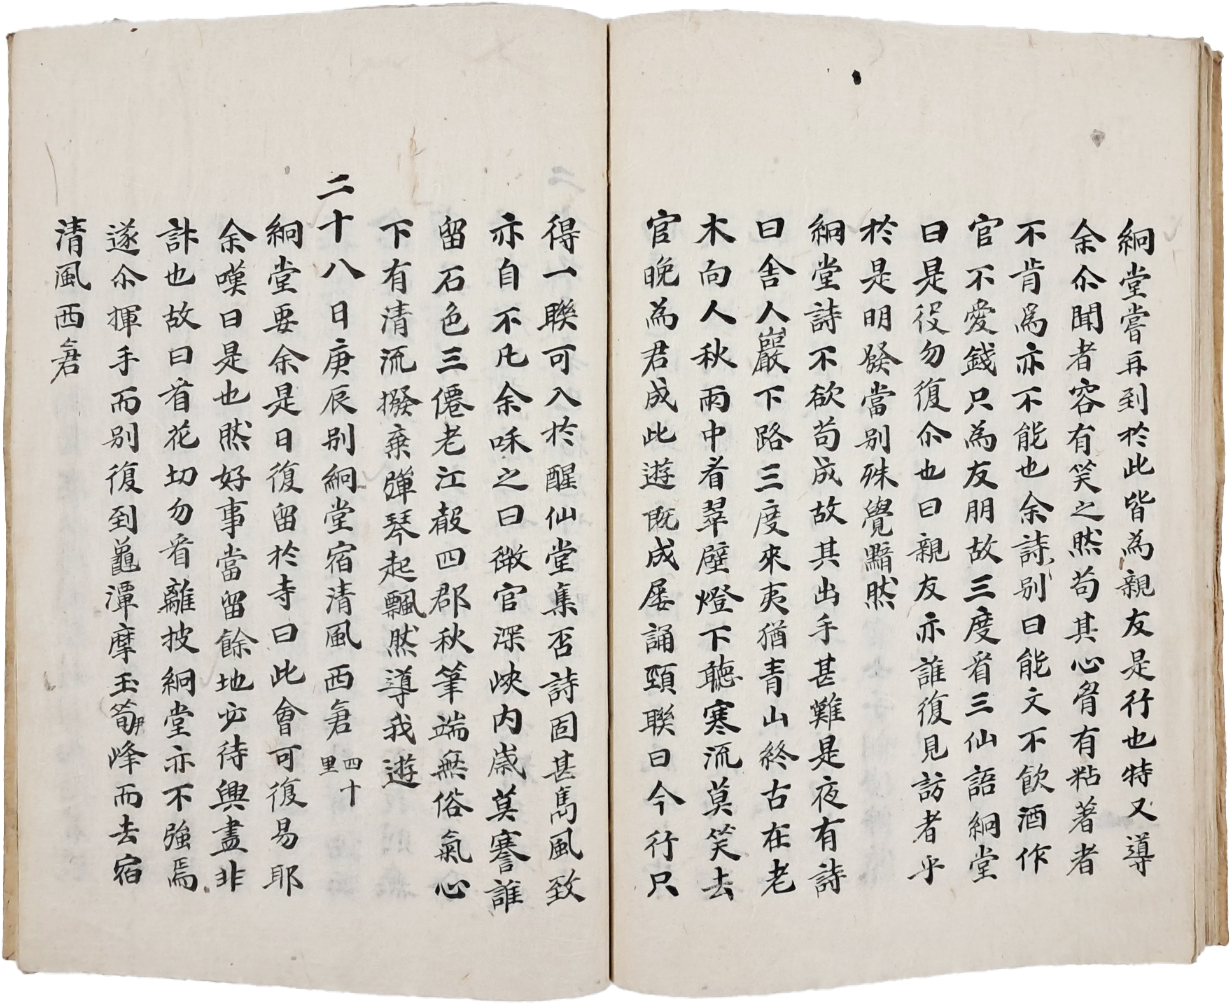 絅堂嘗再到於此皆為親友是行也特又導
余尒聞者容有笑之然苟其心胷有粘著者
不肯爲亦不能也余詩別曰能文不飮酒作
官不愛錢只為友朋故三度看三仙語絅堂
曰是役勿復尒也曰親友亦誰復見訪者乎
於是明發當别殊覺黯然
絅堂詩不欲苟成故其出手甚難是夜有詩
曰舍人巖下路三度來夷猶青山終古在老
木向人秋雨中看翠壁燈下聽寒流莫笑去
官晚為君成此遊既成屡誦頸聯曰今行只
得一聯可入於醒仙堂集否詩固甚雋風致
亦自不凡余咊之曰微官深峽内歲莫謇誰
留石色三僊老江聲四郡秋筆端無俗氣心
下有清流撥棄彈琴起飄然導我遊
二十八日庚辰别絅堂宿清風西倉四十里
絅堂要余是日復留於寺曰此會可復易耶
余嘆曰是也然好事當留餘地必待興盡非
計也故曰看花切勿看離披絅堂亦不強焉
遂尒揮手而别復到龜潭摩玉筍峰而去宿
清風西倉